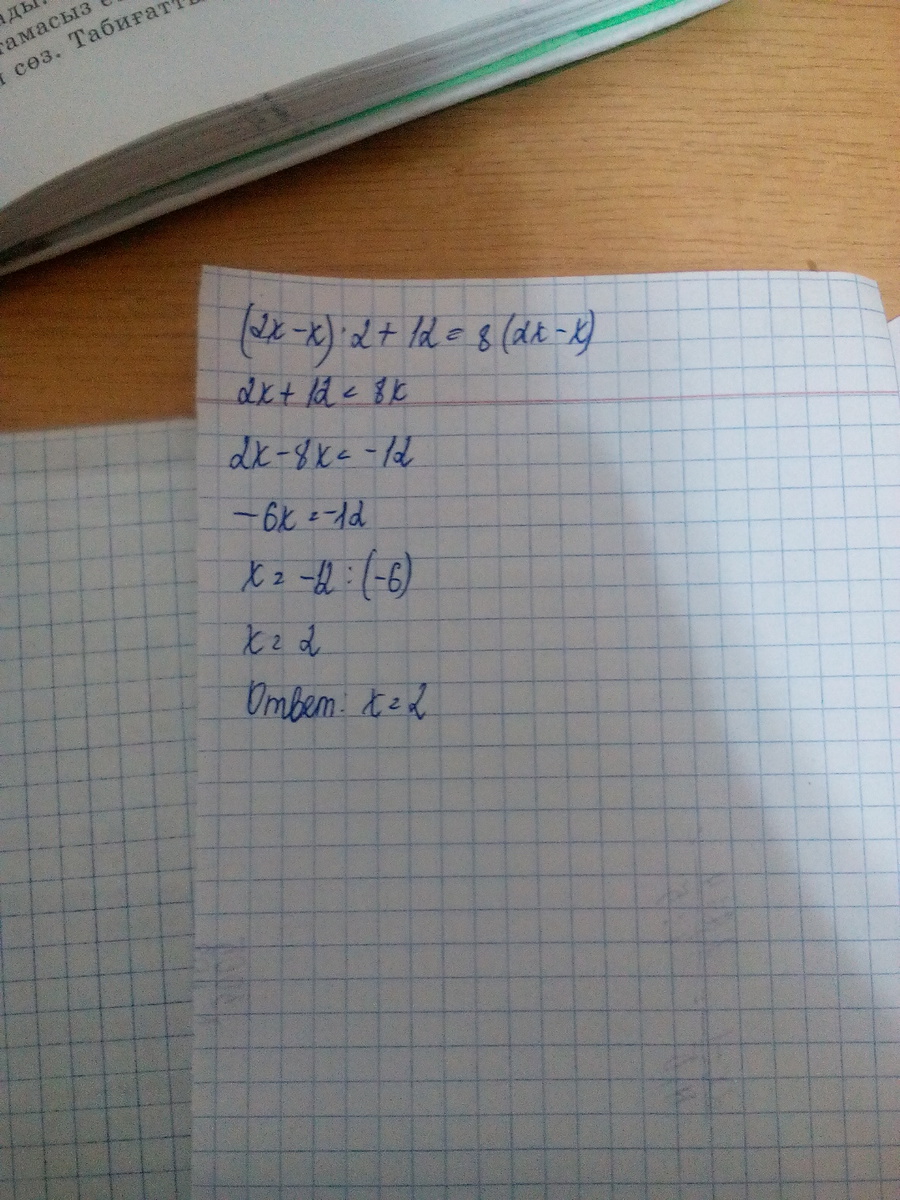 ады.
тамасыз е
сөз. Табиғатты
(2x-x)·2+12=8(2x-x)
2x+12=8x
2x-8x=-12
-6x=-12
x=-12:(-6)
x=2
Ответ: x=2